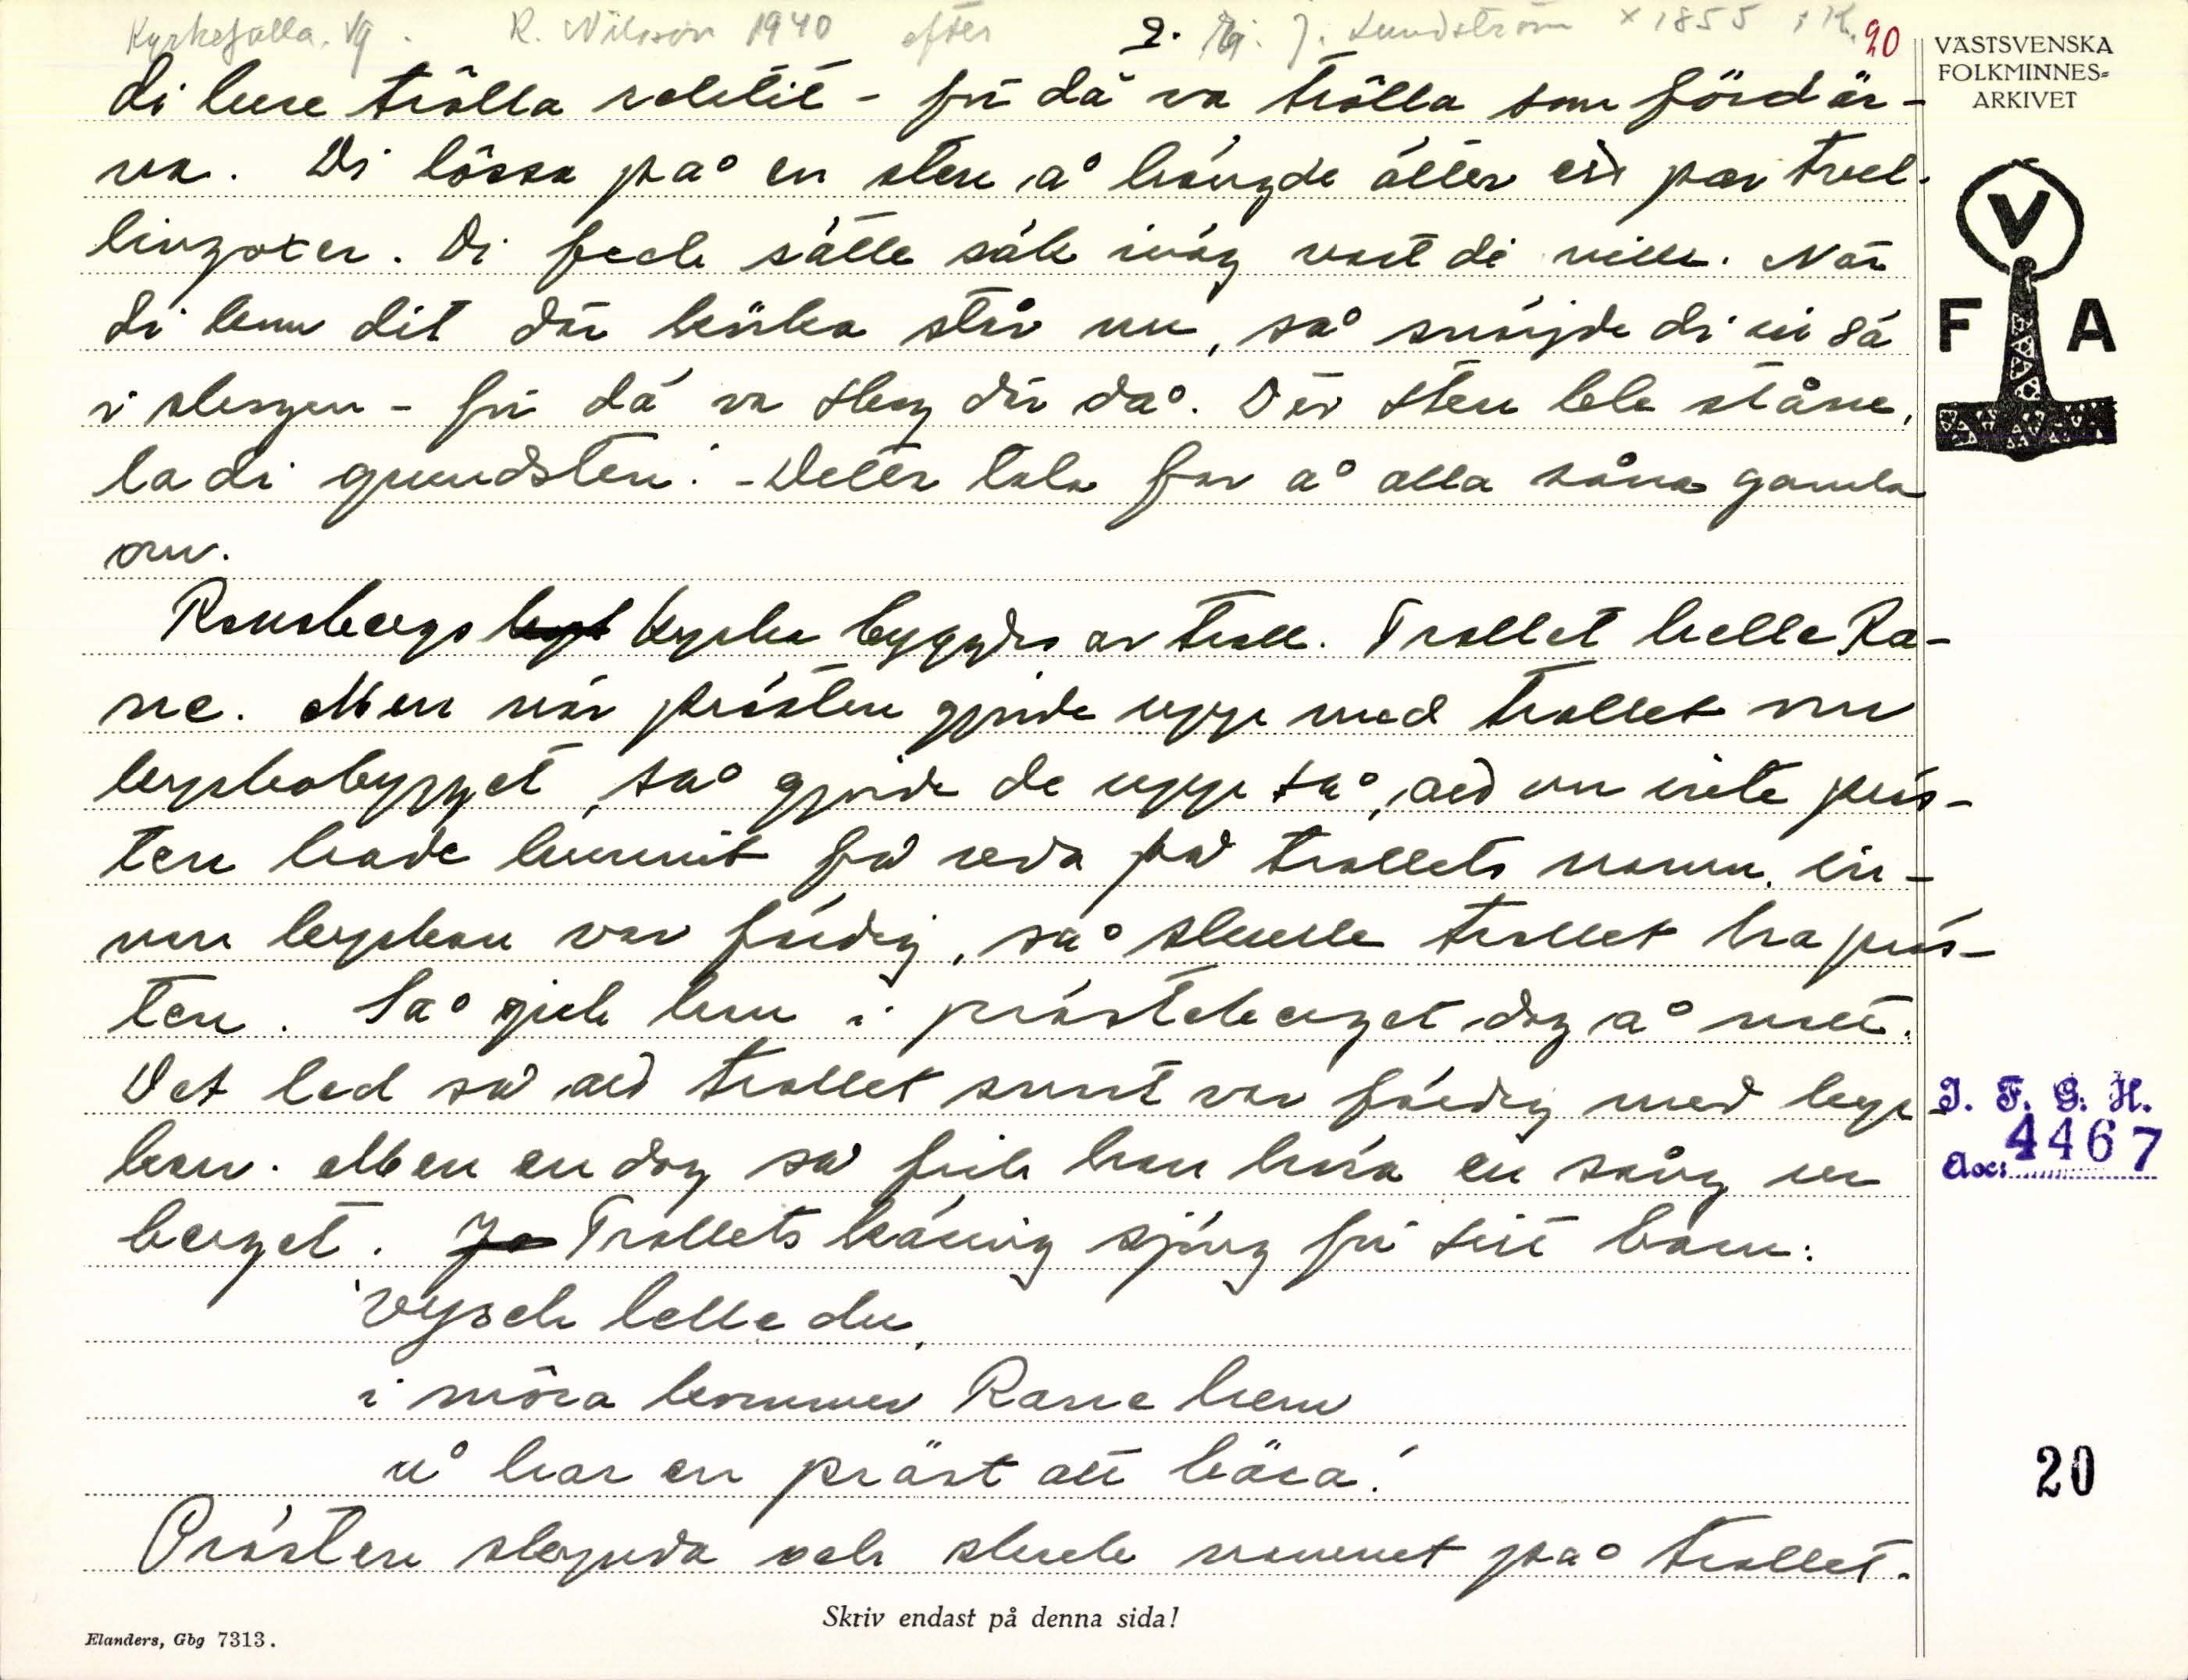 Kyrkefalla. Vg. R. Nilsson 1940 efter 2. J. Lundström x 1855 i K. 20
VÄSTSVENSKA
FOLKMINNES-
ARKIVET
V
F A
di trôlla - för dä va trôlla som fördär-
va. Di lôssa på en sten å hängde ätter ett par tvel-
lingoxer. Di feck sätte säk iväg vart di ville. När
di kom dit där körka står nu, så snöjde di in sä
i skogen - för dä va skog där då. Där sten ble ståne,
la di grundsten. - talte far å alla såna gamla
om.
Ransbergs kyrka byggdes av troll. Trollet hette Ra-
ne. Men när prästen gjorde upp med trollet om
kyrkobygget, så gjorde de upp så, att om inte präs-
ten hade kunnat få reda på trollets namn, in-
nan kyrkan var färdig, så skulle trollet ha präs-
ten. Så gick han i prästeberget dag å natt.
Det led så att trollet snart var färdig med kyr-
kan. Men en dag så fick han höra en sång ur
berget. Trollets käring sjöng för sitt barn:
Vyssch lelle du,
i môra kommer Rane hem
å har en präst att bära!
Prästen skyndade och skrek namnet på trollet.
I. F. G. H.
Acc: 4467
20
Skriv endast på denna sida!
Elanders, Gbg 7313.